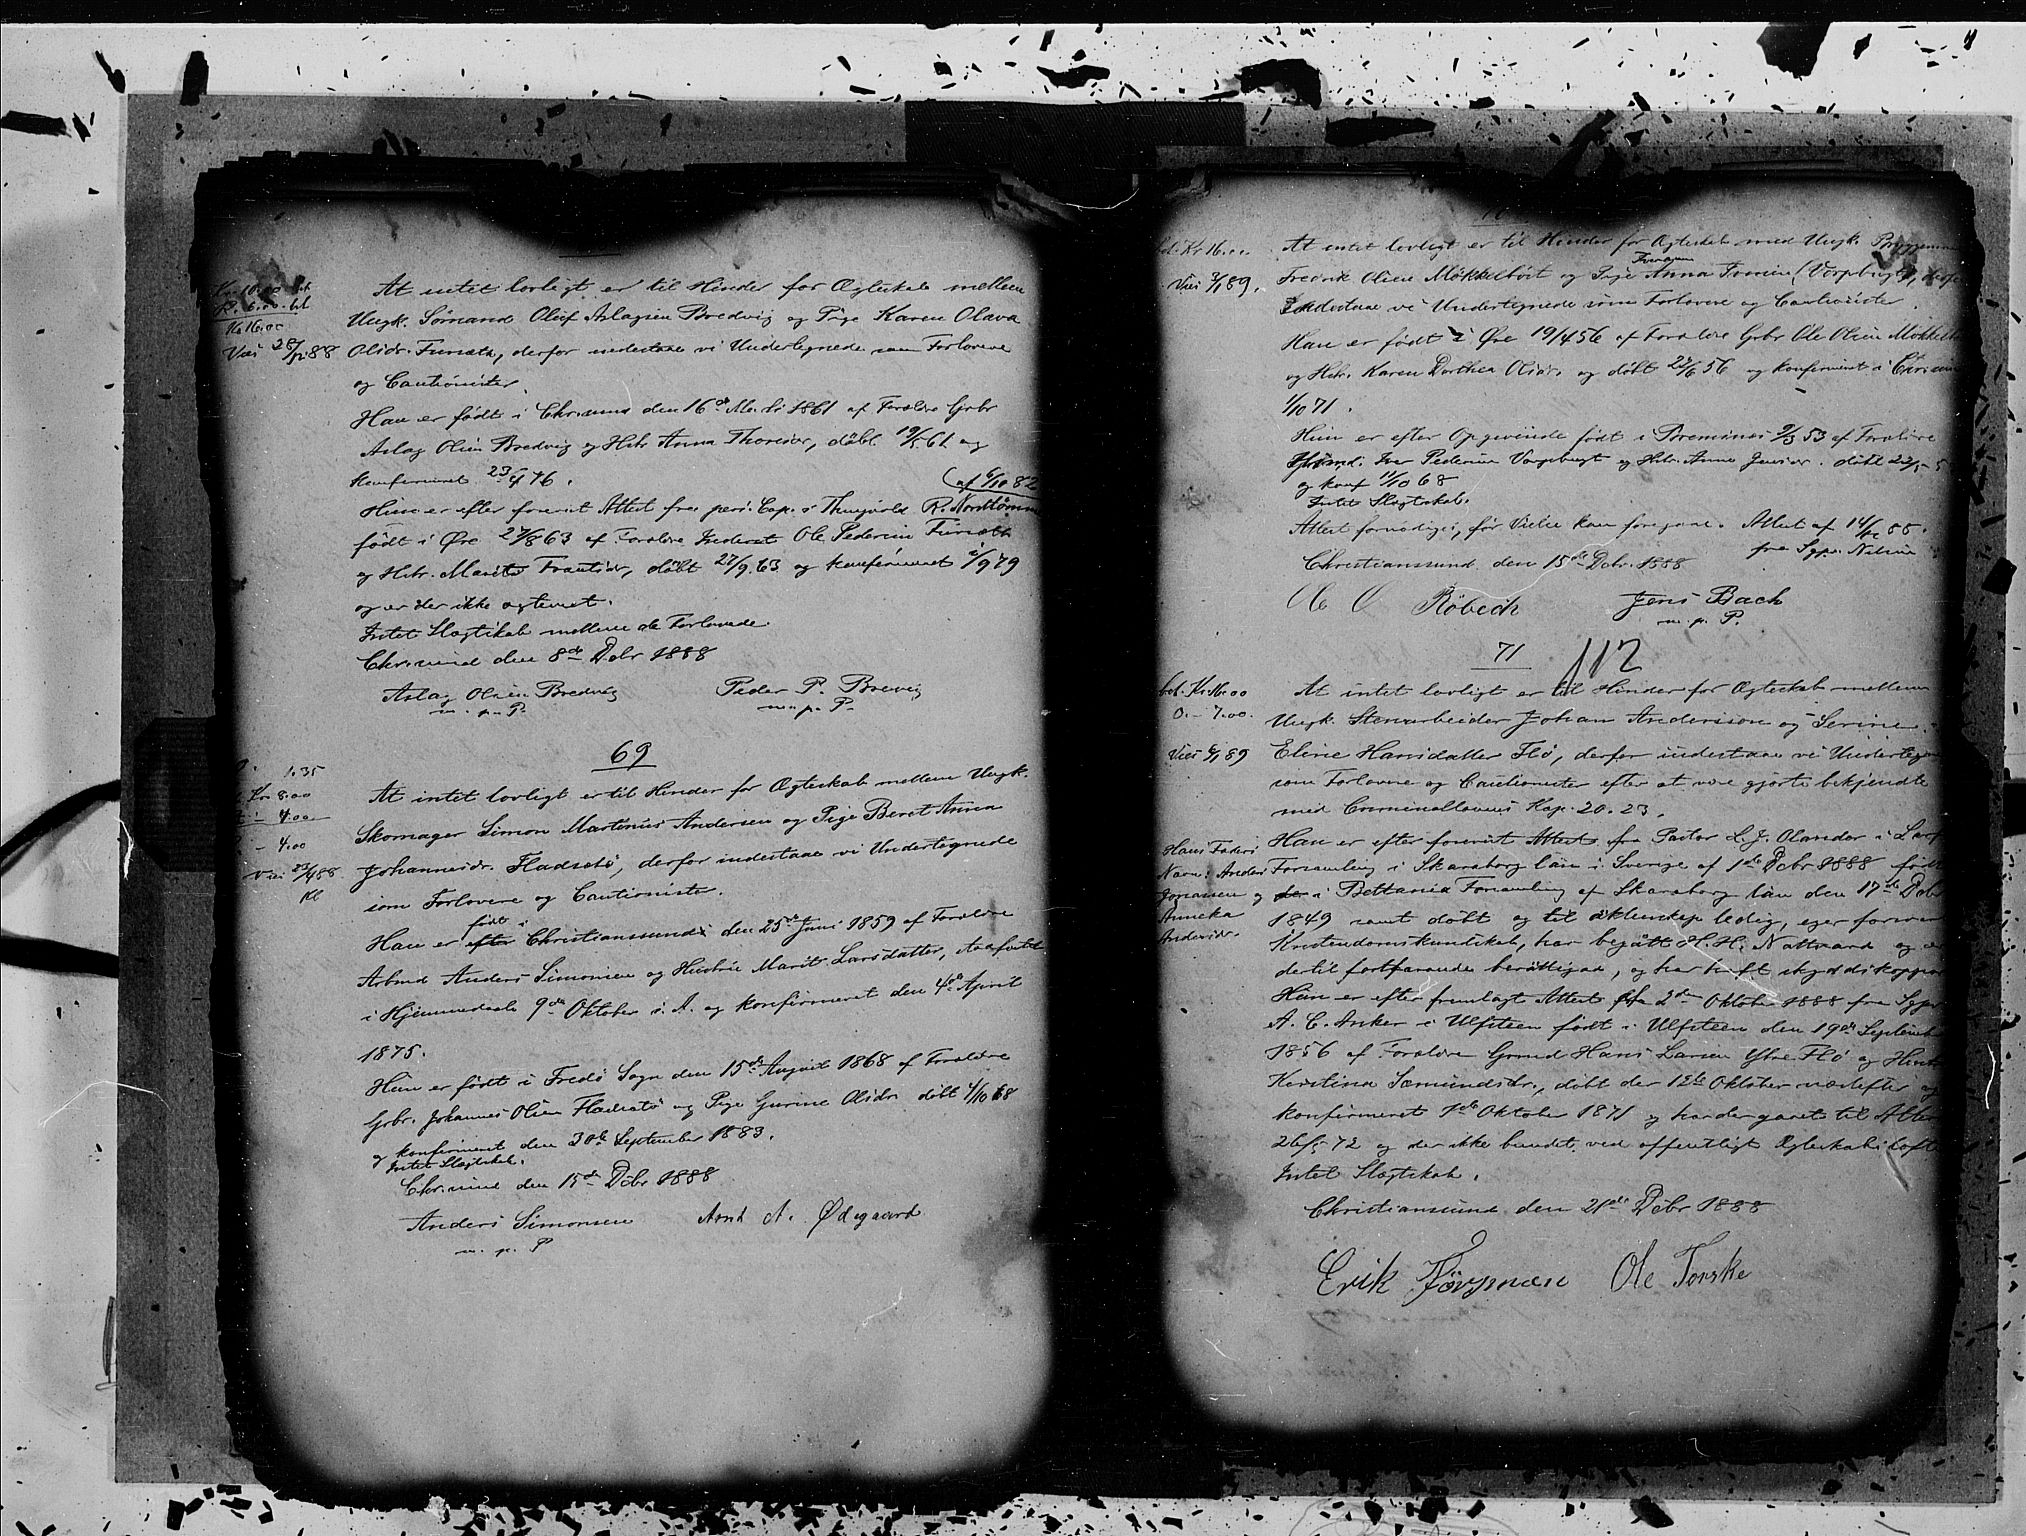 Kr. 10.00 bet
R. 6.00 bet
Kr 16.00
Viet 28/12 88
At intet lovligt er til Hinder for Ægteskab mellem
Ungk. Sømand Oluf Aslagsen Bredvig og Pige Karen Olava
Olsdr. Furseth, derfor indestaae vi Undertegnede som Forlovere
og Cautionister.
Han er født i Chr.sund den 16de Marts 1861 af Forældre Grbr
Aslag Olsen Bredvig og Hstr Anna Thoresdr, døbt 19/5 61 og
konfirmeret 23/4 76.
(af 6/10 82
Hun er efter foreviist Attest fra pers. Cap. i Thingvold R. Nordtømme
født i Øre 27/8 63 af Forældre Inderst Ole Pedersen Furseth
og Hstr. Marit Frantsdr, døbt 27/9 63 og konfirmeret /9 79
og er der ikke ægteviet.
Intet Slægtskab mellem de Forlovede.
Chr.sund den 8de Debr 1888
Aslag Olsen Bredvig Peder P. Brevig
m. p. P. m. p. P.
69
1.35
Kr. 8.00
4.00
- 4.00
Viet 23/ 88
At intet lovligt er til Hinder for Ægteskab mellem Ungk.
Skomager Simon Martinus Andersen og Pige Beret Anna
Johannesdr. Fladsetø, derfor indestaae vi Undertegnede
som Forlovere og Cautionister.
født i
Han er efter Christianssund den 25de Juni 1859 af Forældre
Arbmd Anders Simonsen og Hustru Marit Larsdatter,
i Hjemmedaab 9de Oktober s. A. og konfirmeret den 4de April
1875.
Hun er født i Fredø Sogn den 15de August 1868 af Forældre
Grbr. Johannes Olsen Fladsetø og Pige Gurine Olsdr døbt 4/10 68
og konfirmeret den 30te September 1883.
Intet Slægtskab.
Chr.sund den 15de Debr 1888
Anders Simonsen Arnt A. Ødegaard
m. p. P
Kr 16.00
Viet 2/1 89.
At intet lovligt er til Hinder for Ægteskab med Ungk.
Fredrik Olsen Møkkelbost og Pige Anna (Vorpbugt),
Indestaae vi Undertegnede som Forlovere og Cautionister.
Han er født i Øre 19/4 56 af Forældre Grbr Ole Olsen
og Hstr. Karen Dorthea Olsdr. og døbt 22/6 56 og konfirmeret i
1/10 71.
Hun er efter Opgivende født i Bremsnæs 9/3 53 af Forældre
Iver Pedersen Vorpbugt og Hstr. Anne Jensdr. døbt
og konf 11/10 68
Intet Slægtskab.
Attest fornødiges, før Vielse kan foregaae. Attest af 14/12 88.
fra Sgpr. Nilsen
Christianssund den 15de Debr. 1888
Ole O Røbech Jens Bach
m. p. P.
71
112
bet. Kr. 16.00
O. - 7.00.
Viet 6/1 89
At intet lovligt er til Hinder for Ægteskab mellem
Ungk. Stenarbeider Johan Andersson og Serine
Eline Hansdatter Flø, derfor indestaae vi
som Forlovere og Cautionister efter at være gjorte bekjendte
med Criminallovens Kap. 20. 23.
Hans Faders
Navn: Anders
Jonassen og
Anneka
Andersdr.
Han er efter foreviist Attest fra Pastor L. J. Olander i
Forsamling i Skaraborg län i Sverige af 1ste Debr 1888 født
i Bettania Forsamling af Skaraborg län den 17de Debr
1849 samt døbt og til äktenskap ledig, eger forsvar
Kristendomskundskab, har begått H. H. Nattvard og
dertil fortfarande berättigad, og har haft skyddskoppor
Hun er efter fremlagt Attest fra 2den Oktober 1888 fra Sgpr
A. C. Anker i Ulfsteen født i Ulfsteen den 19de September
1856 af Forældre Grmd Hans Larsen Ytre Flø og
Kirstina Sæmundsdr., døbt der 12te Oktober næstefter og
konfirmeret 1ste Oktober 1871 og har der gaaet til Alters
26/5 72 og der ikke bundet ved offentligt Ægteskabsløfte
Intet Slægtskab.
Christianssund den 21de Debr 1888
Erik Ole Torske